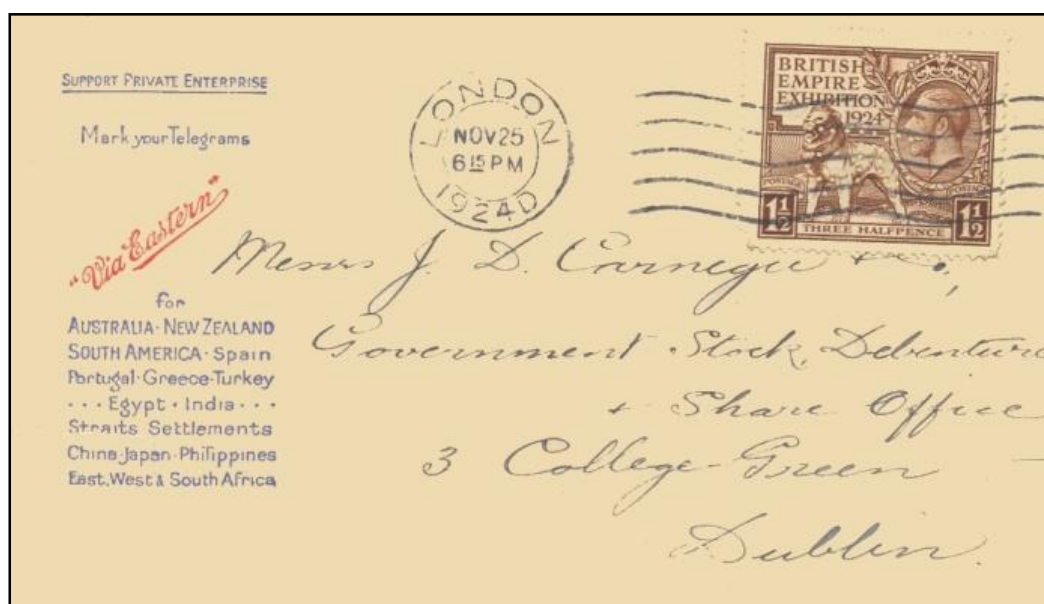 SUPPORT PRIVATE ENTERPRISE
Mark your Telegrams
"Via Eastern"
for
AUSTRALIA · NEW ZEALAND
SOUTH AMERICA · Spain
Portugal · Greece · Turkey
··· Egypt · India ···
Straits Settlements
China · Japan · Philippines
East, West & South Africa
LONDON
NOV 25
6 15 PM
1924 D
BRITISH
EMPIRE
EXHIBITION
1924
POSTAGE POSTAGE
1½ THREE HALFPENCE 1½
Messrs J. D. Carnegie + Co,
Government Stock, Debenture
+ Share Office
3 College Green
Dublin.